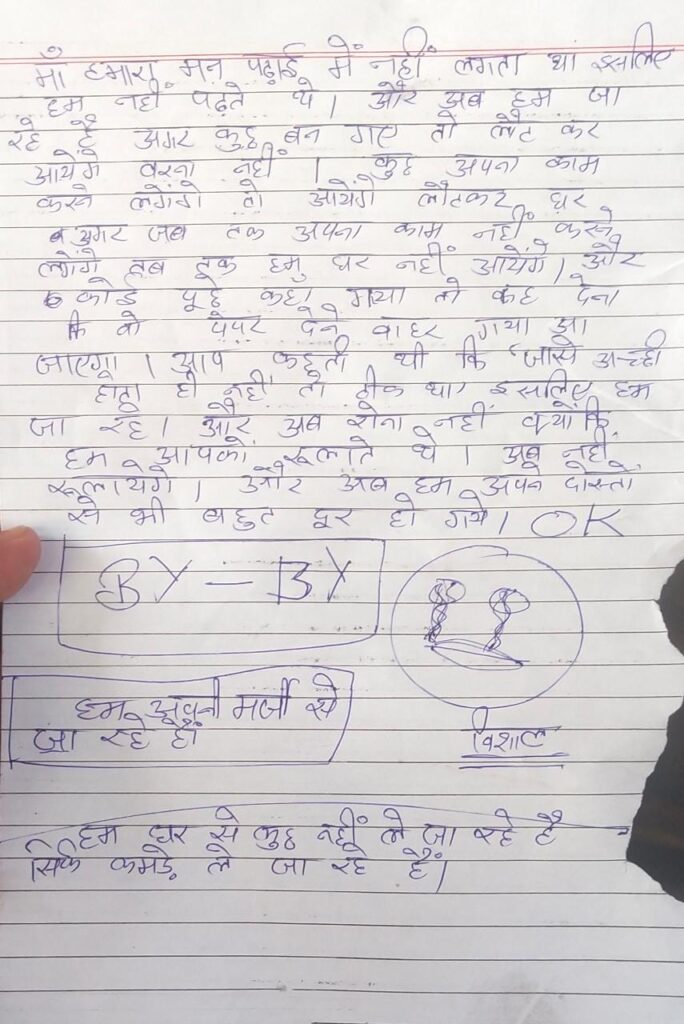 माँ हमारा मन पढ़ाई में नहीं लगता था इसलिए
हम नहीं पढ़ते थे। और अब हम जा
रहे हैं अगर कुछ बन गए तो लौट कर
आयेंगे वरना नहीं। कुछ अपना काम
करने लगेंगे तो आयेंगे लौटकर घर
अगर जब तक अपना काम नहीं करने
लगेंगे तब तक हम घर नहीं आयेंगे। और
कोई पूछे कहाँ गया तो कह देना
कि वो पेपर देने बाहर गया आ
जाएगा। आप कहती थी कि जासे अच्छी
होता ही नहीं तो ठीक था इसलिए हम
जा रहे। और अब रोना नहीं क्योंकि
हम आपको रूलाते थे। अब नहीं
रूलायेगे। और अब हम अपने दोस्तों
से भी बहुत दूर हो गये। OK
BY - BY
हम अपनी मर्जी से
जा रहे हैं
विशाल
हम घर से कुछ नहीं ले जा रहे है
सिर्फ कपड़े ले जा रहे हैं।